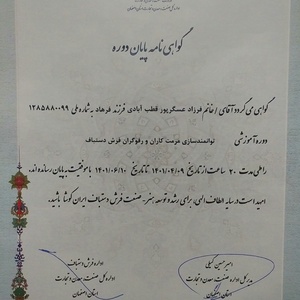 گواهی نامه پایان دوره
گواهی می گردد آقای / خانم فرزاد عسگرپور قطب آبادی فرزند فرهاد به شماره ملی ۱۲۸۵۸۸۰۰۹۹
دوره آموزشی توانمندسازی مرمت کاران و رفوگران فرش دستباف
را طی مدت ۲۰ ساعت از تاریخ ۱۴۰۱/۰۴/۰۹ تا تاریخ ۱۴۰۱/۰۶/۱۰ با موفقیت به پایان رسانده اند.
امید است در سایه الطاف الهی، برای رشد و توسعه هنر-صنعت فرش دستباف ایران کوشا باشید.
اداره فرش دستباف
اداره کل صنعت معدن و تجارت
استان اصفهان
امیرحسین کمیلی
مدیرکل اداره صنعت معدن و تجارت
استان اصفهان